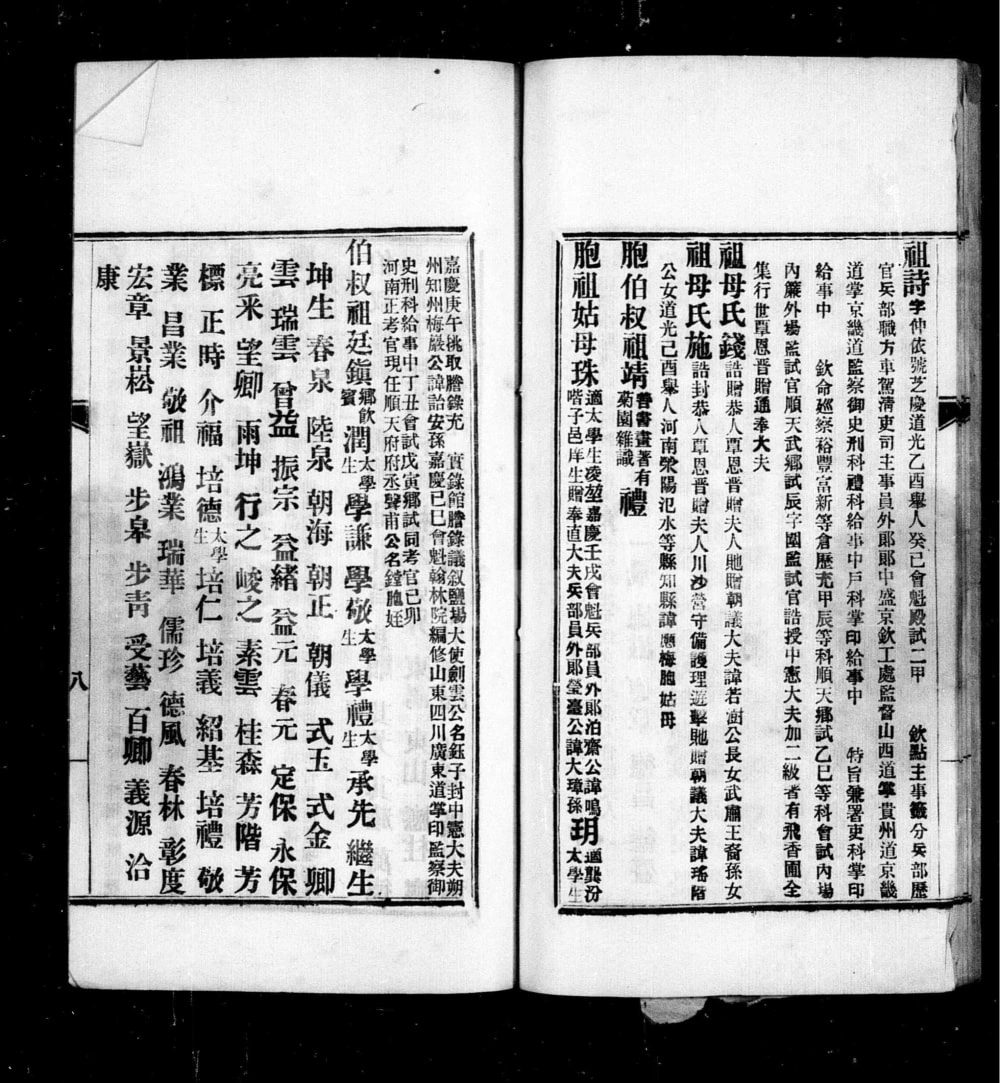 祖詩字仲依號芝慶道光乙酉舉人癸巳會魁殿試二甲 欽點主事籤分兵部歷
官兵部職方車駕清吏司主事員外郎郎中盛京欽工處監督山西道掌貴州道京畿
道掌京畿道監察御史刑科禮科給事中戶科掌印給事中 特旨兼署吏科掌印
給事中 欽命巡察裕豐富新等倉歷充甲辰等科順天鄉試乙巳等科會試內場
內簾外場監試官順天武鄉試辰字圍監試官誥授中憲大夫加二級著有飛香圃全
集行世覃恩晉贈通奉大夫
祖母氏錢誥贈恭人覃恩晉贈夫人貤贈朝議大夫諱若澍公長女武肅王裔孫女
祖母氏施誥封恭人覃恩晉贈夫人川沙營守備護理遊擊貤贈朝議大夫諱瑤階
公女道光己酉舉人河南滎陽汜水等縣知縣諱應梅胞姑母
胞伯叔祖靖善書畫著有菊園雜識 禮
胞祖姑母珠適太學生凌堃嘉慶壬戌會魁兵部員外郎泊齋公諱鳴喈子邑庠生贈奉直大夫兵部員外郎瑩臺公諱大璋孫玥適龔汾太學生
嘉慶庚午挑取謄錄充 實錄館謄錄議敘鹽場大使劍雲公名鈺子封中憲大夫朔
州知州梅巖公諱詒安孫嘉慶己巳會魁翰林院編修山東四川廣東道掌印監察御
史刑科給事中丁丑會試戊寅鄉試同考官己卯
河南正考官現任順天府府丞聲甫公名鏜胞姪
伯叔祖廷鎮鄉飲賓 潤太學生 學謙 學敬太學生 學禮太學生 承先 繼生
坤生 春泉 陸泉 朝海 朝正 朝儀 式玉 式金 卿
雲 瑞雲 曾益 振宗 益緒 益元 春元 定保 永保
亮采 望卿 雨坤 行之 峻之 素雲 桂森 芳階 芳
標 正時 介福 培德太學生 培仁 培義 紹基 培禮 敬
業 昌業 敬祖 鴻業 瑞華 儒珍 德風 春林 彰度
宏章 景崧 望嶽 步皋 步青 受藝 百卿 義源 洽
康
八